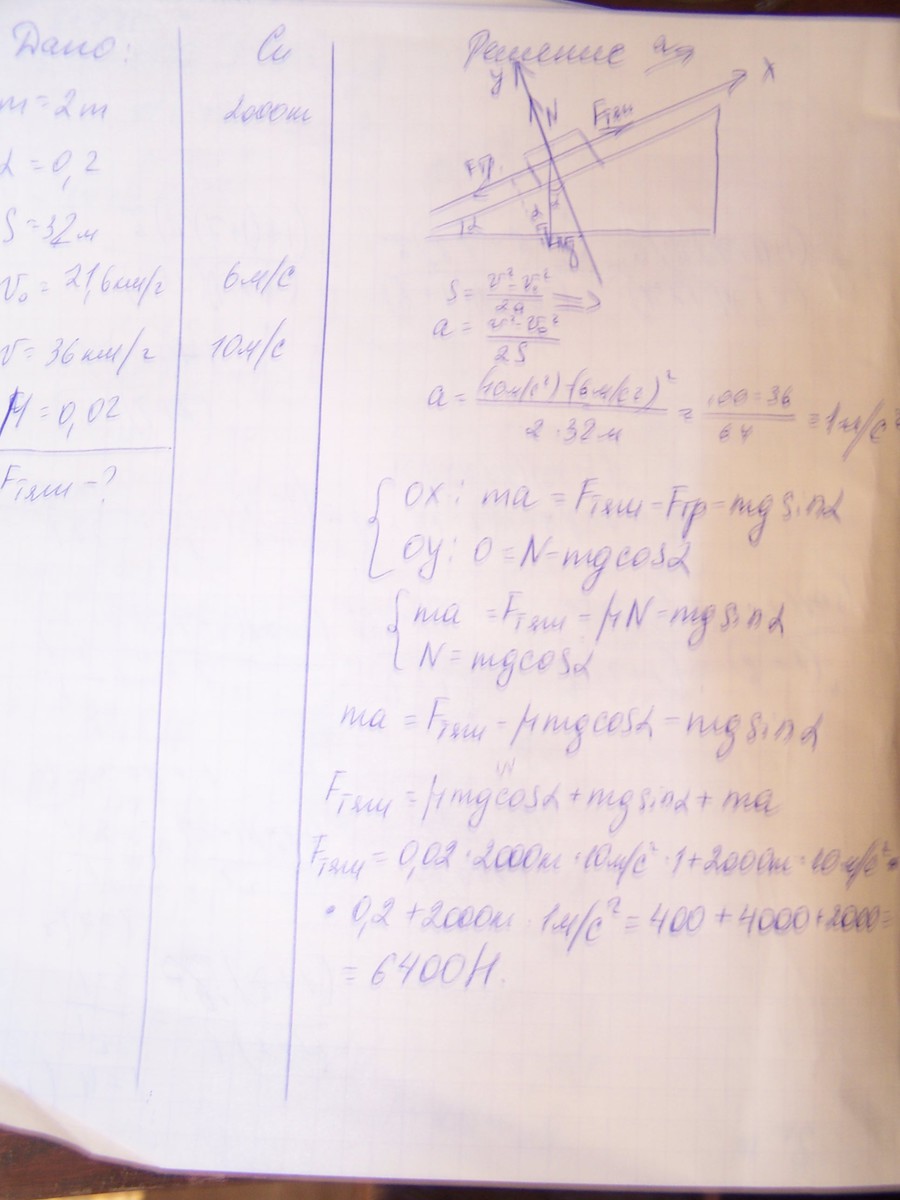 Дано:
m = 2т
α = 0,2
S = 32м
v₀ = 21,6км/г
v = 36км/г
μ = 0,02
Fтяги - ?
Си
2000кг
6м/с
10м/с
Решение
y
x
N
Fтяги
Fтр
α
α
α
mg
S = (v² - v₀²)/2a =>
a = (v² - v₀²)/2S
a = ((10м/с²) - (6м/с²)²)/(2·32м) = (100-36)/64 = 1м/с²
OX: ma = Fтяги - Fтр - mg sinα
OY: 0 = N - mg cosα
ma = Fтяги - μN - mg sinα
N = mg cosα
ma = Fтяги - μmg cosα - mg sinα
Fтяги = μmg cosα + mg sinα + ma
Fтяги = 0,02 · 2000кг · 10м/с² · 1 + 2000кг · 10м/с² ·
· 0,2 + 2000кг · 1м/с² = 400 + 4000 + 2000 =
= 6400Н.